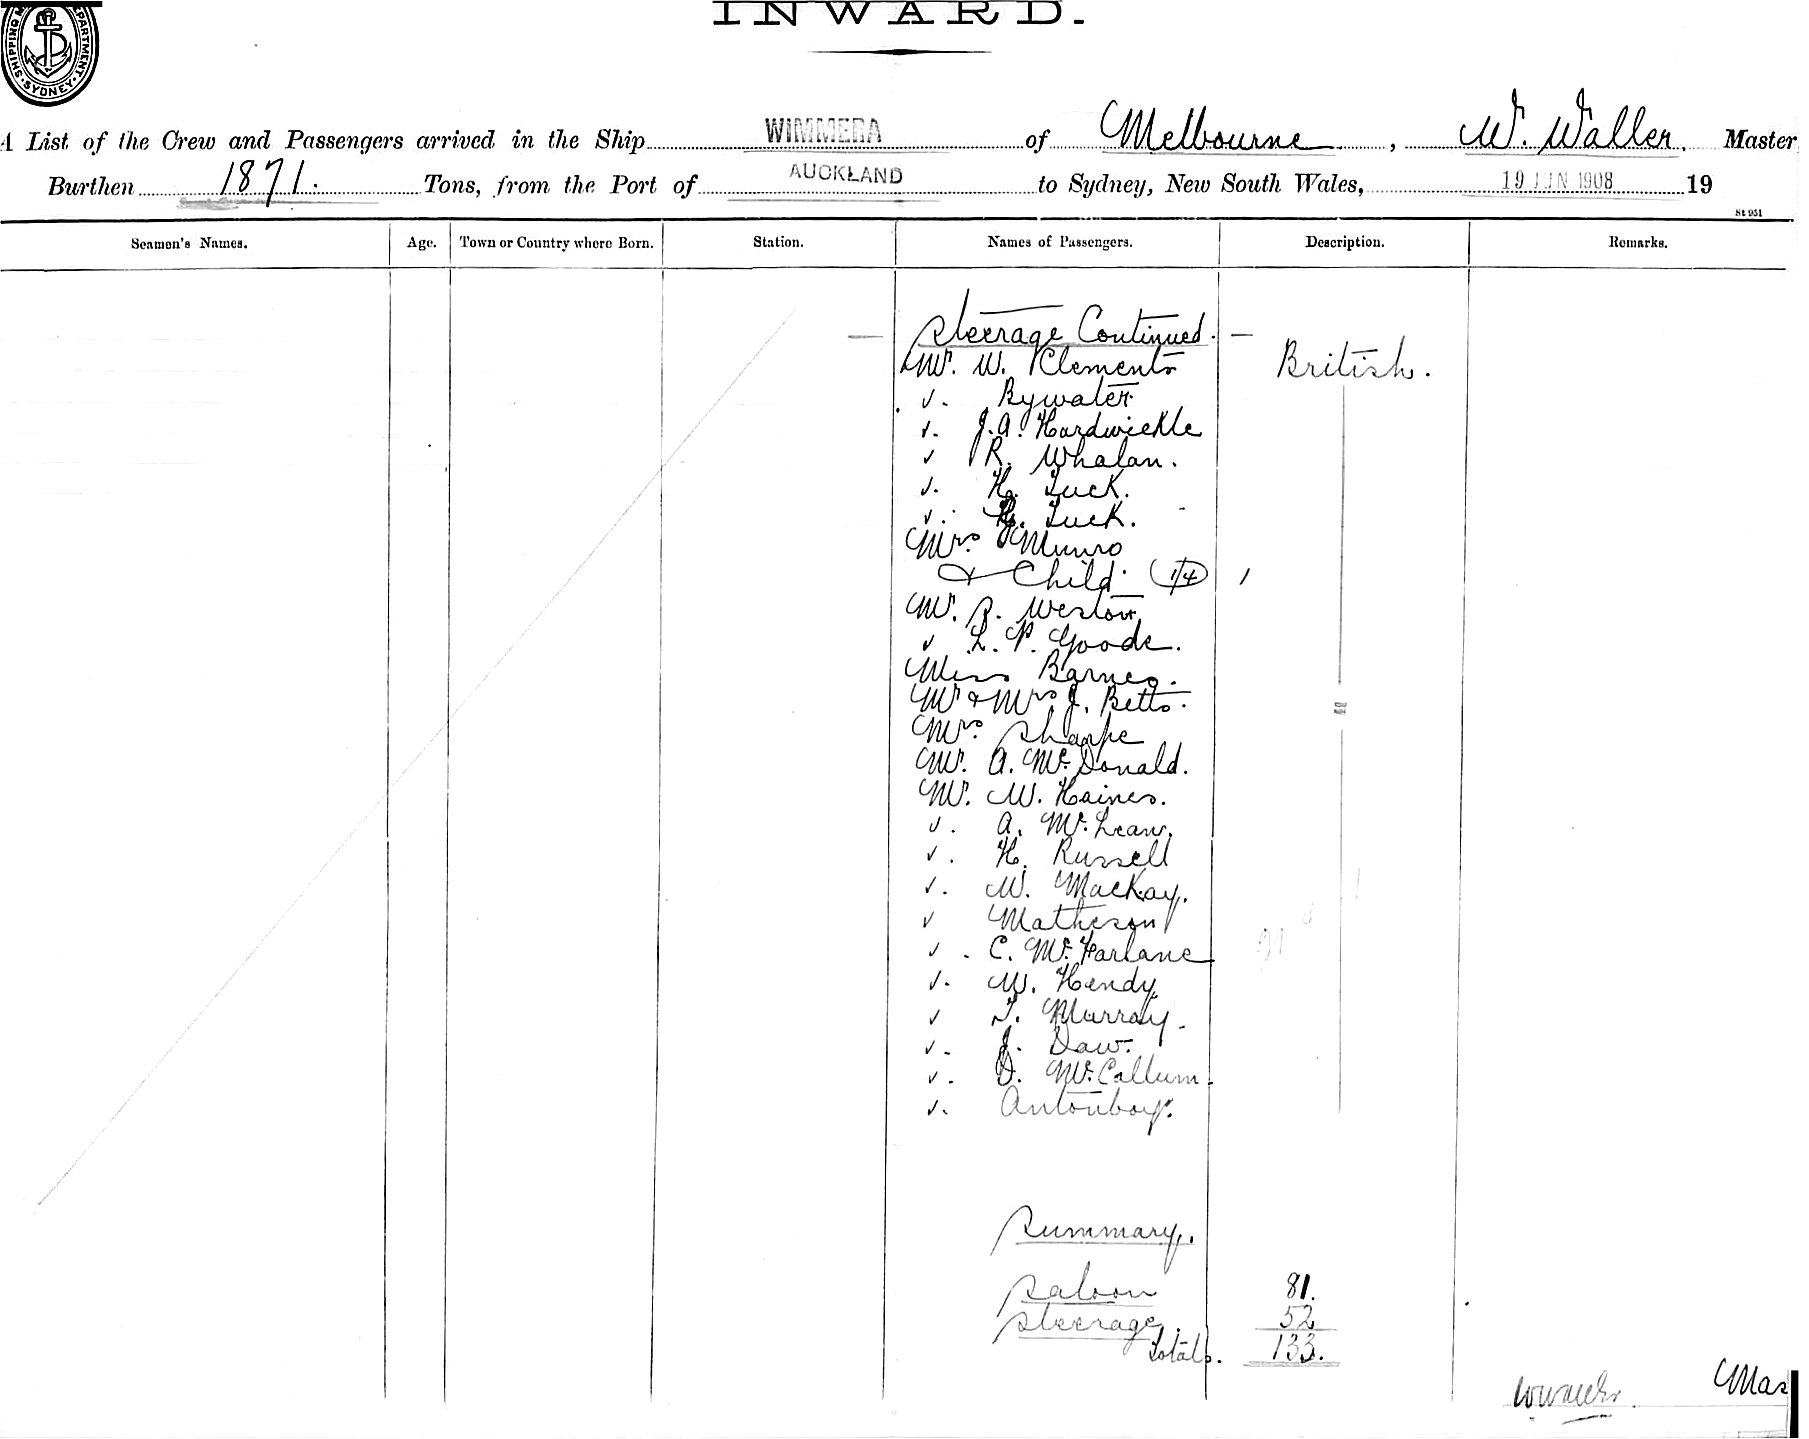 INWARD.
SHIPPING DEPARTMENT. SYDNEY
A List of the Crew and Passengers arrived in the Ship WIMMERA of Melbourne, W. Waller. Master
Burthen 1871. Tons, from the Port of AUCKLAND to Sydney, New South Wales, 19 JUN 1908 19
St 951
Seamen's Names. Age. Town or Country where Born. Station. Names of Passengers. Description. Remarks.
— Steerage Continued. —
Mr. W. Clements British.
✓. Bywater.
✓. J.A. Hardwickle
✓ R. Whalan.
✓. H. Tuck.
✓. Tuck.
Mrs. Munro
& Child. (1/4) 1
Mr. R. Weston
✓ L. P. Goode.
Miss Barnes.
Mr & Mrs J. Betts.
Mrs. Sharpe
Mr. A. McDonald.
Mr. W. Haines.
✓. A. McLean.
✓. H. Russell
✓. W. Mackay.
✓ Matheson
✓. C. McFarlane
✓. W. Hendy
✓ T. Murray.
✓. J. Daw.
✓. D. McCallum.
✓. Antonboy.
Summary.
Saloon 81.
Steerage. 52
Totals. 133.
Mas